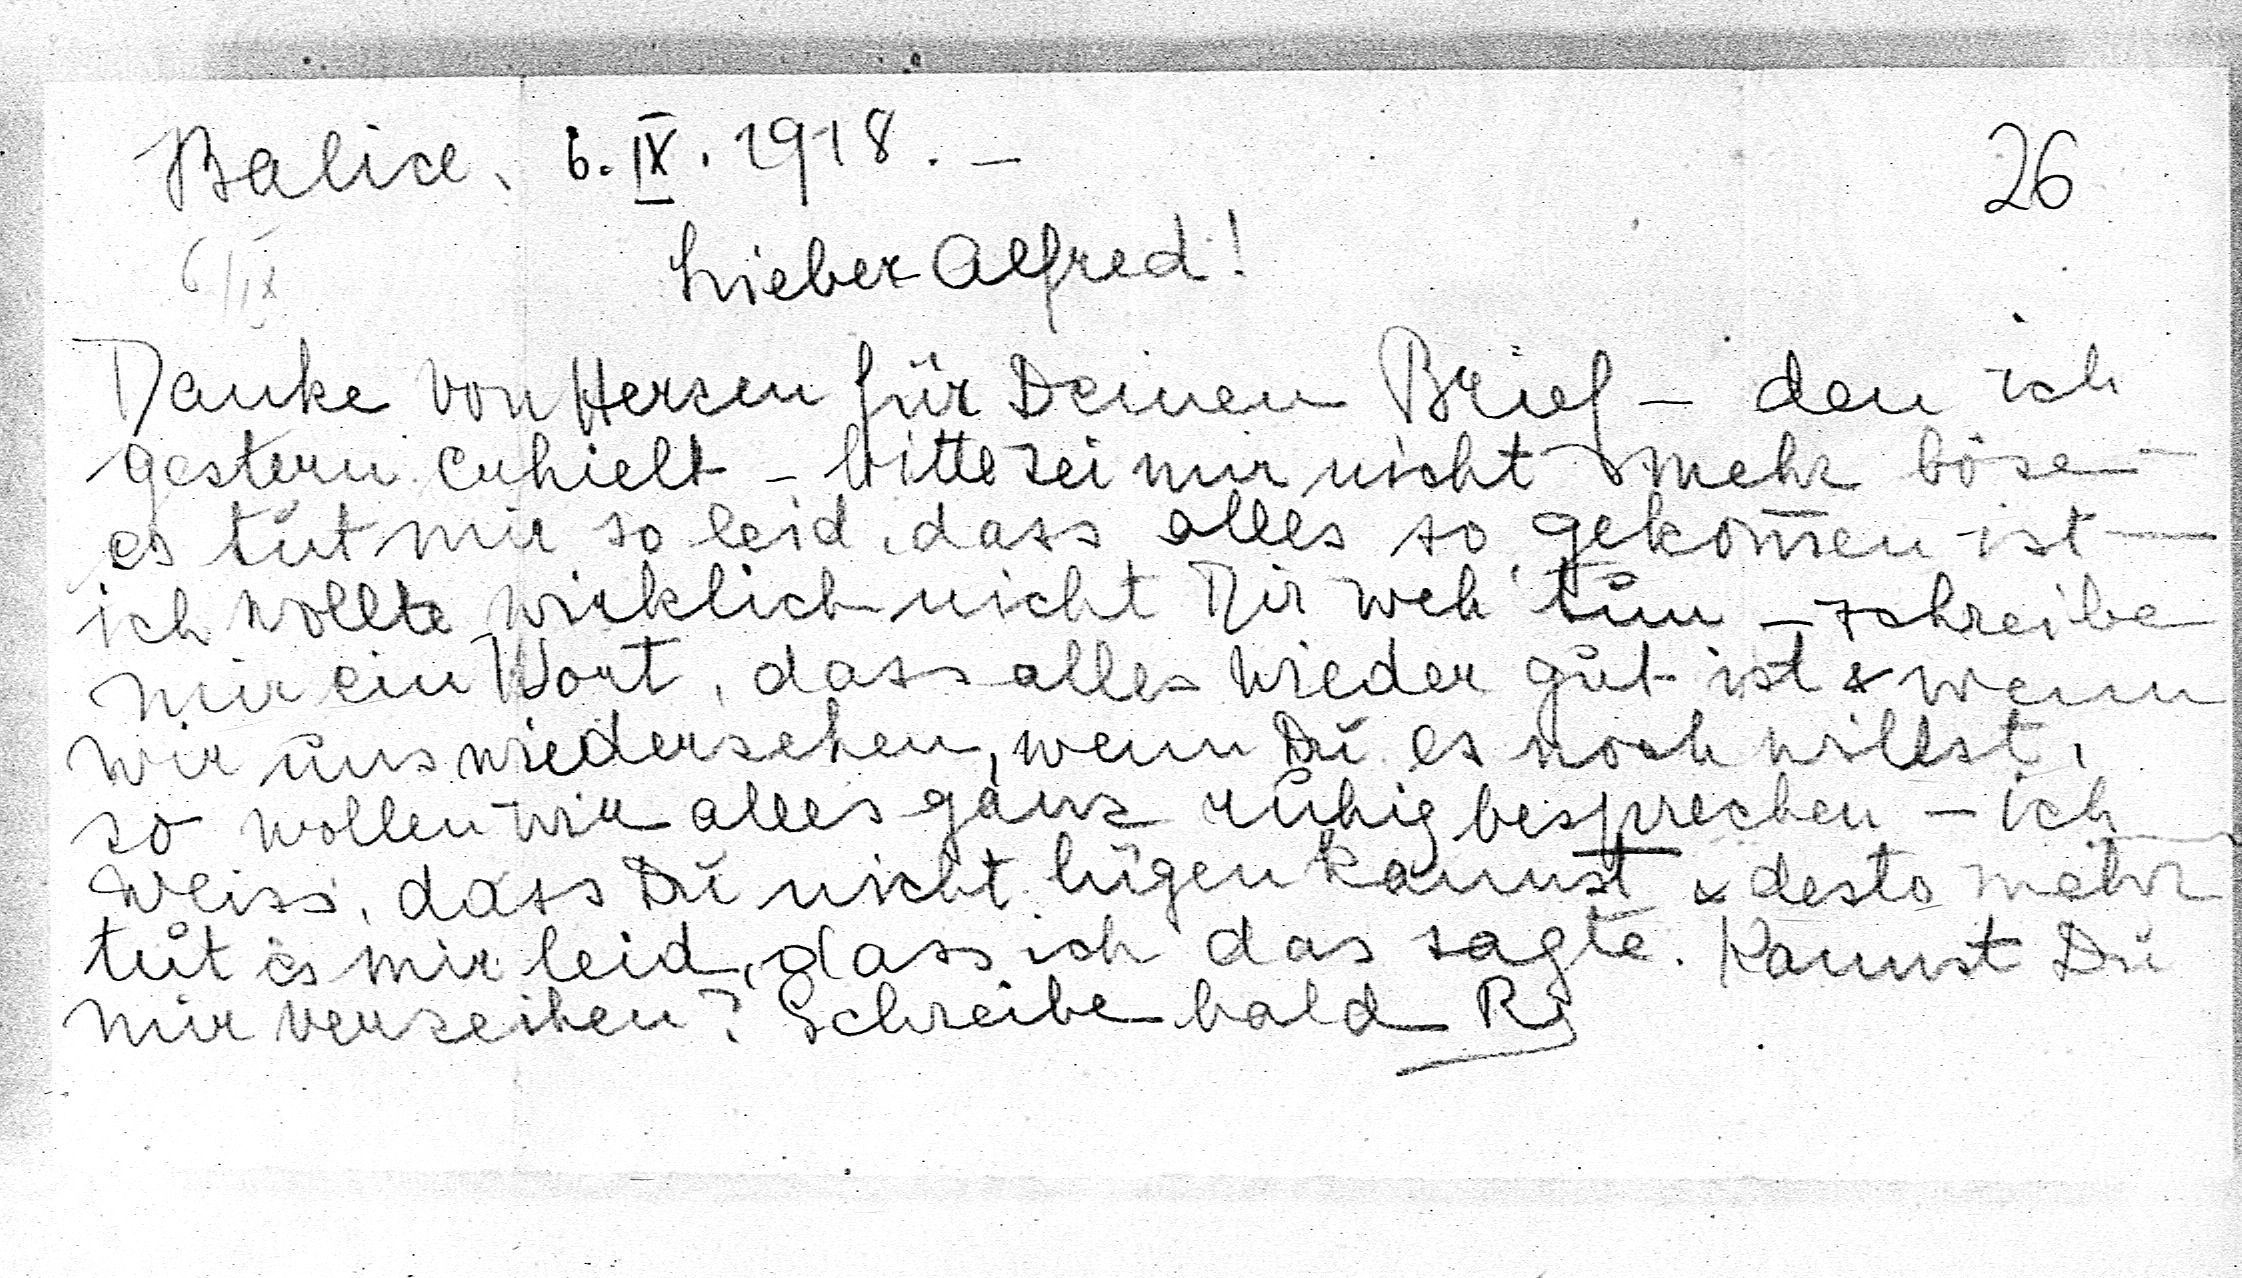 Balice, 6.IX.1918.–
26
6/IX
Lieber Alfred!
Danke von Herzen für Deinen Brief – den ich
gestern erhielt – bitte sei mir nicht mehr böse –
es tut mir so leid, dass alles so gekom̄en ist –
ich wollte wirklich nicht Dir weh tun – schreibe
mir ein Wort, dass alles wieder gut ist & wenn
wir uns wiedersehen, wenn Du es noch willst,
so wollen wir alles ganz ruhig besprechen – ich
weiss, dass Du nicht lügen kannst & desto mehr
tut es mir leid, dass ich das sagte. Kannst Du
mir verzeihen? Schreibe bald